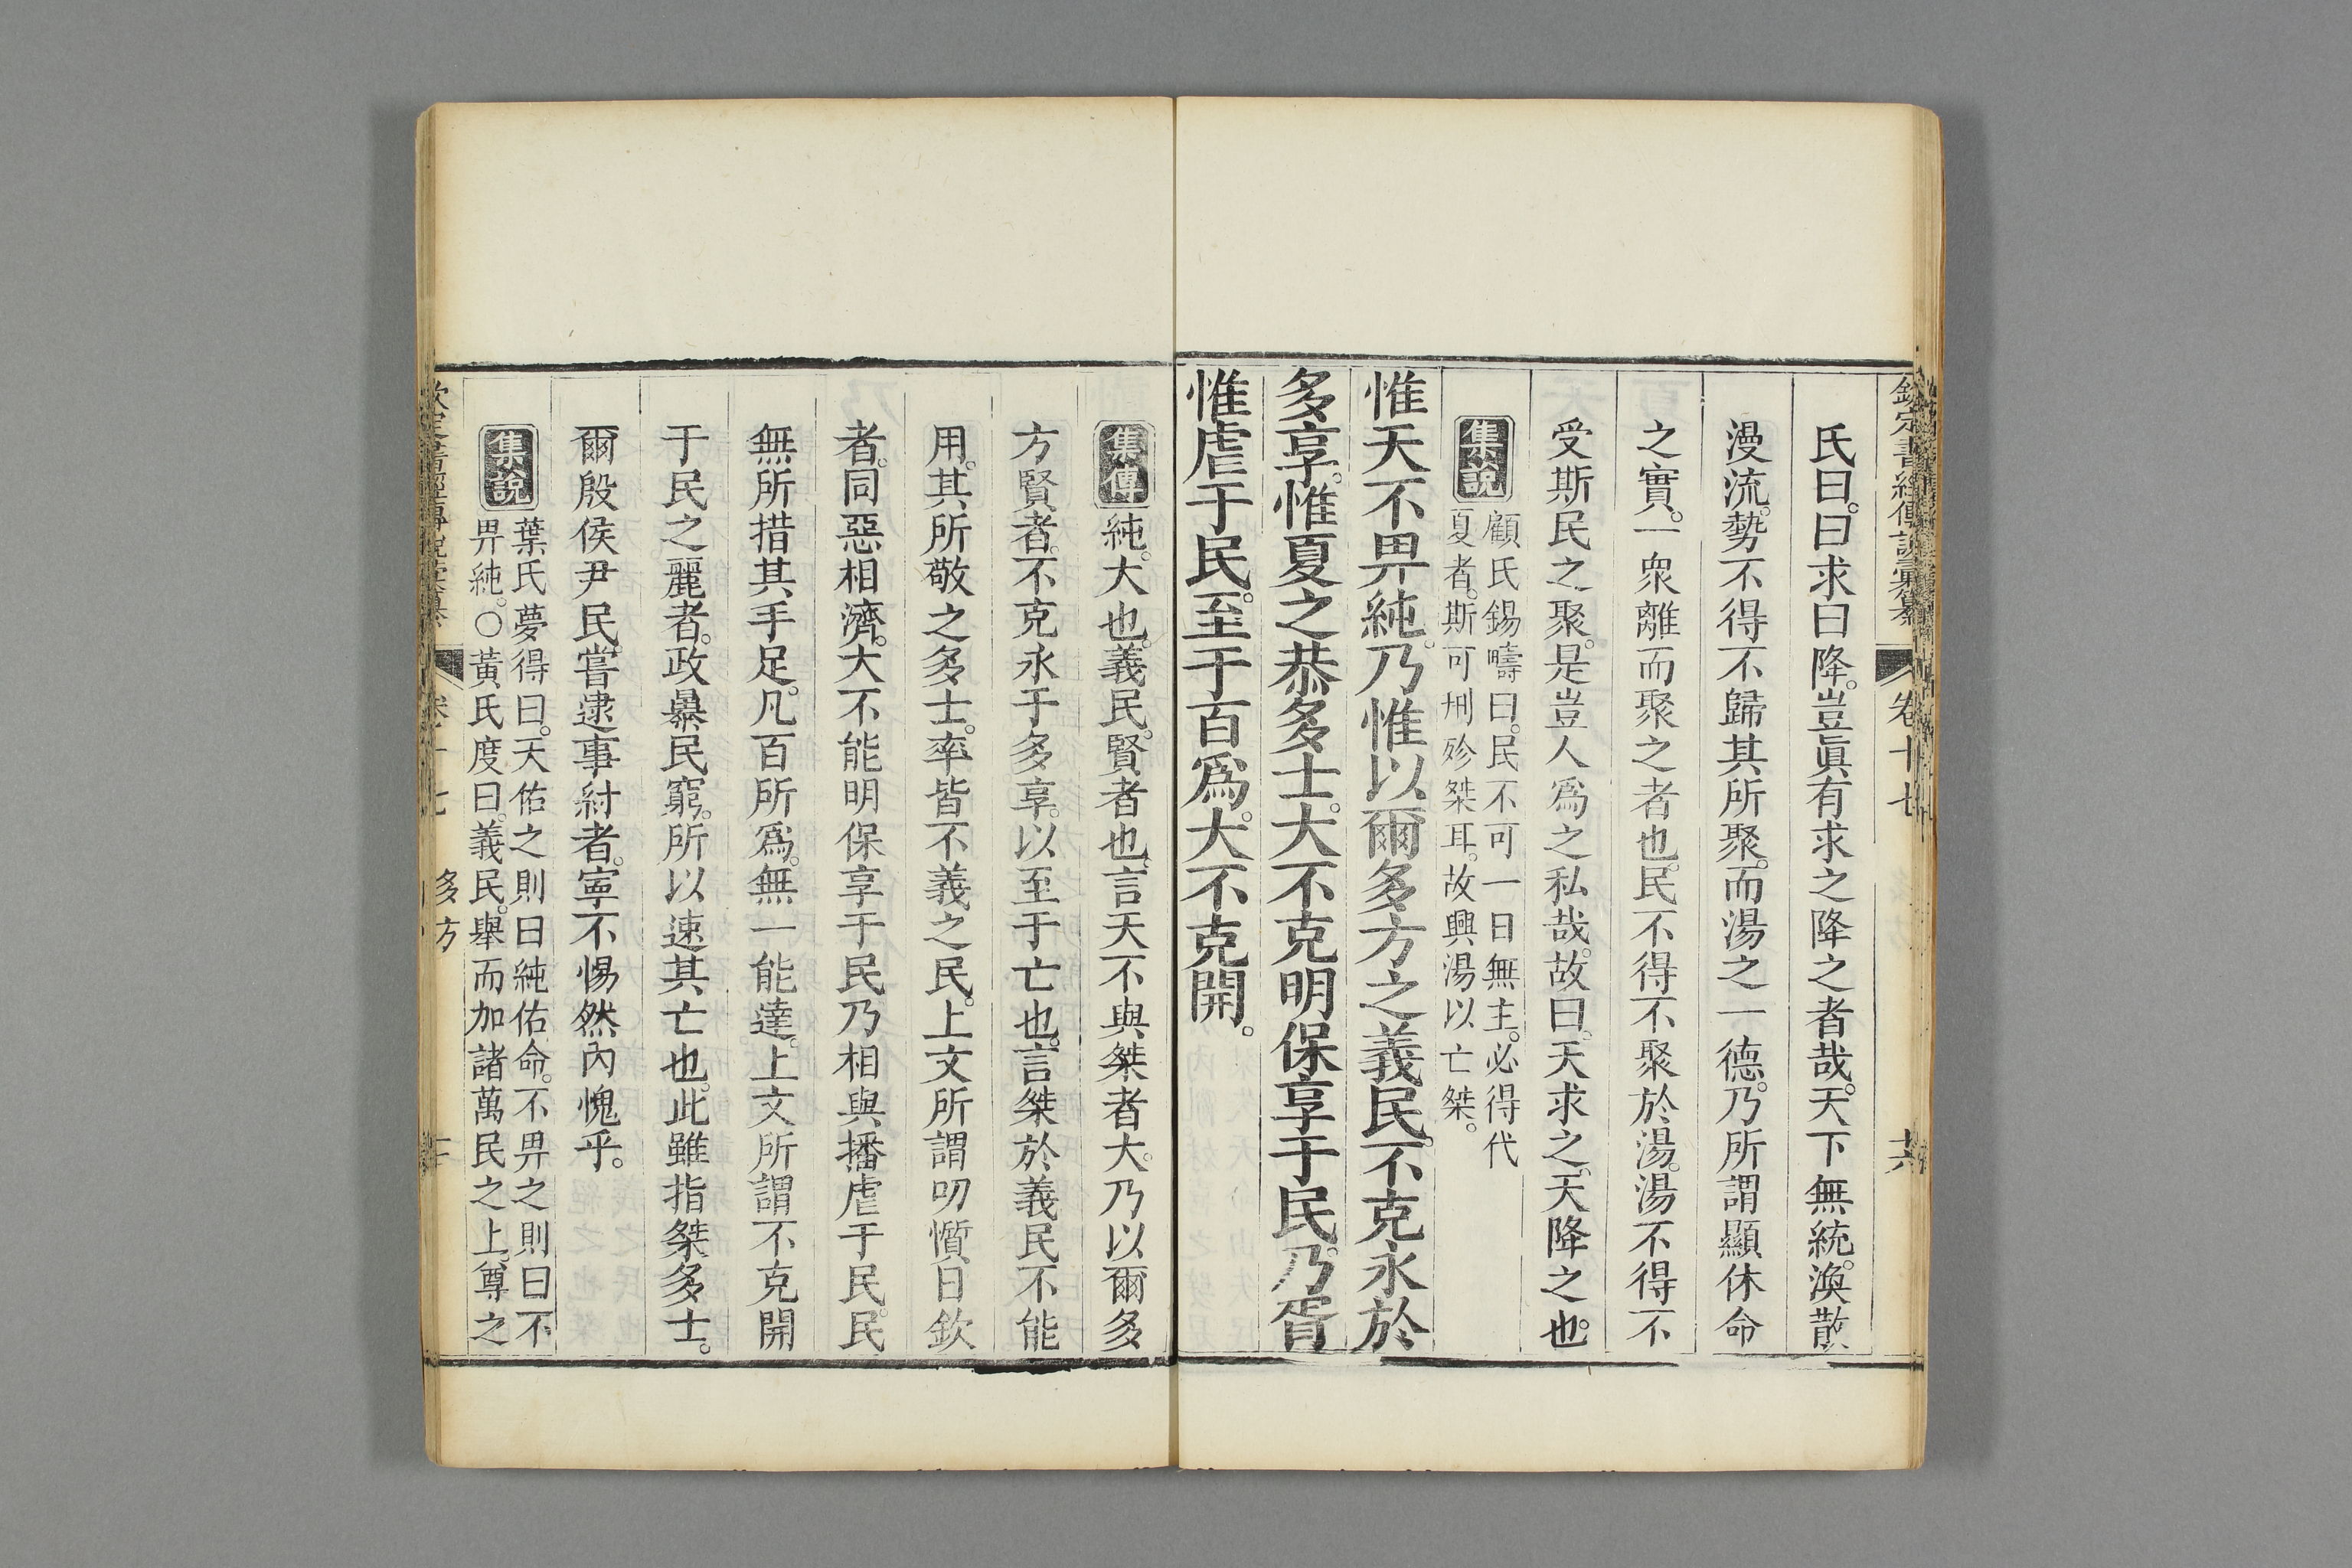 欽定書經傳說彙纂 卷十七 六
氏曰。曰求曰降。豈眞有求之降之者哉。天下無統。渙散
漫流。勢不得不歸其所聚。而湯之一德。乃所謂顯休命
之實。一衆離而聚之者也。民不得不聚於湯。湯不得不
受斯民之聚。是豈人爲之私哉。故曰。天求之。天降之也。
集說 顧氏錫疇曰。民不可一日無主。必得代
夏者。斯可刑殄桀耳。故興湯以亡桀。
惟天不畀純。乃惟以爾多方之義民。不克永於
多享。惟夏之恭多士。大不克明保享于民。乃胥
惟虐于民。至于百爲。大不克開。
集傳 純。大也。義民。賢者也。言天不與桀者大。乃以爾多
方賢者。不克永于多享。以至于亡也。言桀於義民不能
用。其所敬之多士。率皆不義之民。上文所謂叨懫日欽
者。同惡相濟。大不能明保享于民。乃相與播虐于民。民
無所措其手足。凡百所爲。無一能達。上文所謂不克開
于民之麗者。政暴民窮。所以速其亡也。此雖指桀多士。
爾殷侯尹民。嘗逮事紂者。寧不惕然內愧乎。
集說 葉氏夢得曰。天佑之則曰純佑命。不畀之則曰不
畀純。○黃氏度曰。義民。舉而加諸萬民之上。尊之
欽定書經傳說彙纂 卷十七 多方